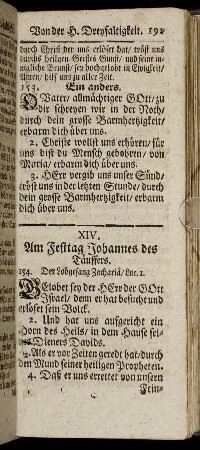 Von der H. Dreyfaltigkeit. 191
durch Christ der uns erlöset hat/ tröst uns
durchs heiligen Geistes Gunst/ und seiner in-
Amen/ hilf uns zu aller Zeit.
153. Ein anders.
O Vater/ allmächtiger GOtt/ zu
dir schreyen wir in der Noth/
durch dein grosse Barmhertzigkeit/
erbarm dich über uns.
2. Christe wollst uns erhören/ für
uns bist du Mensch gebohren/ von
Maria/ erbarm dich über uns.
3. HErr vergib uns unser Sünd/
tröst uns in der letzten Stunde/ durch
dein grosse Barmhertzigkeit/ erbarm
dich über uns.
XIV.
Am Festtag Johannes des
Täuffers.
154. Der Lobgesang Zachariä/ Luc. 1.
GElobet sey der HErr der GOtt
Israel/ denn er hat besucht und
erlöset sein Volck.
2. Und hat uns aufgericht ein
Horn des Heils/ in dem Hause sei-
nes Dieners Davids.
3. Als er vor Zeiten geredt hat/ durch
den Mund seiner heiligen Propheten.
4. Daß er uns errettet von unsern
Fein-